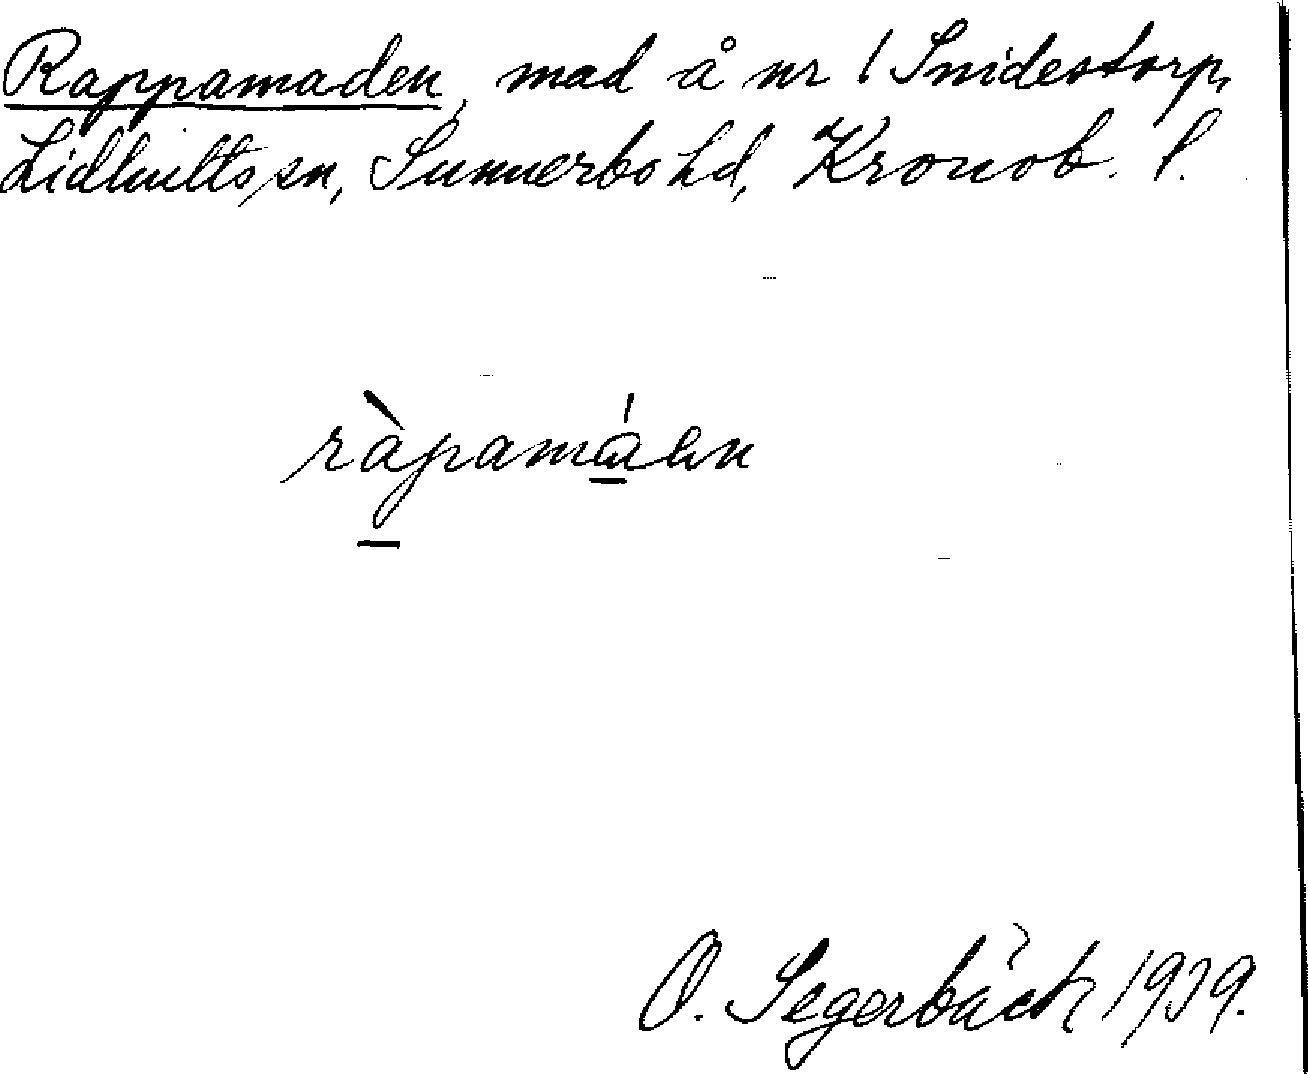 Rappamaden, mad å nr 1 Snidestorp,
Lidhults sn, Sunnerbo hd, Kronob. l.
ràpamáen
O. Segerbäck 1939.